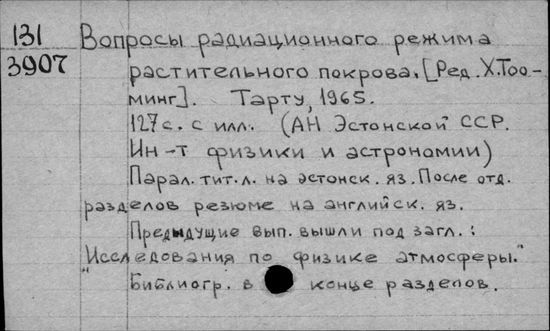 131
3907
Вопросы радиационного режима
растительного покрова. [Ред. Х.Тоо-
минг]. Тарту, 1965.
127 с. с илл. (АН Эстонской ССР.
Ин-т физики и астрономии)
Парал. тит. л. на эстонск. яз. После отд.
разделов резюме на английск. яз.
Предыдущие вып. вышли под загл.:
"Исследования по физике атмосферы."
Библиогр. в конце разделов.